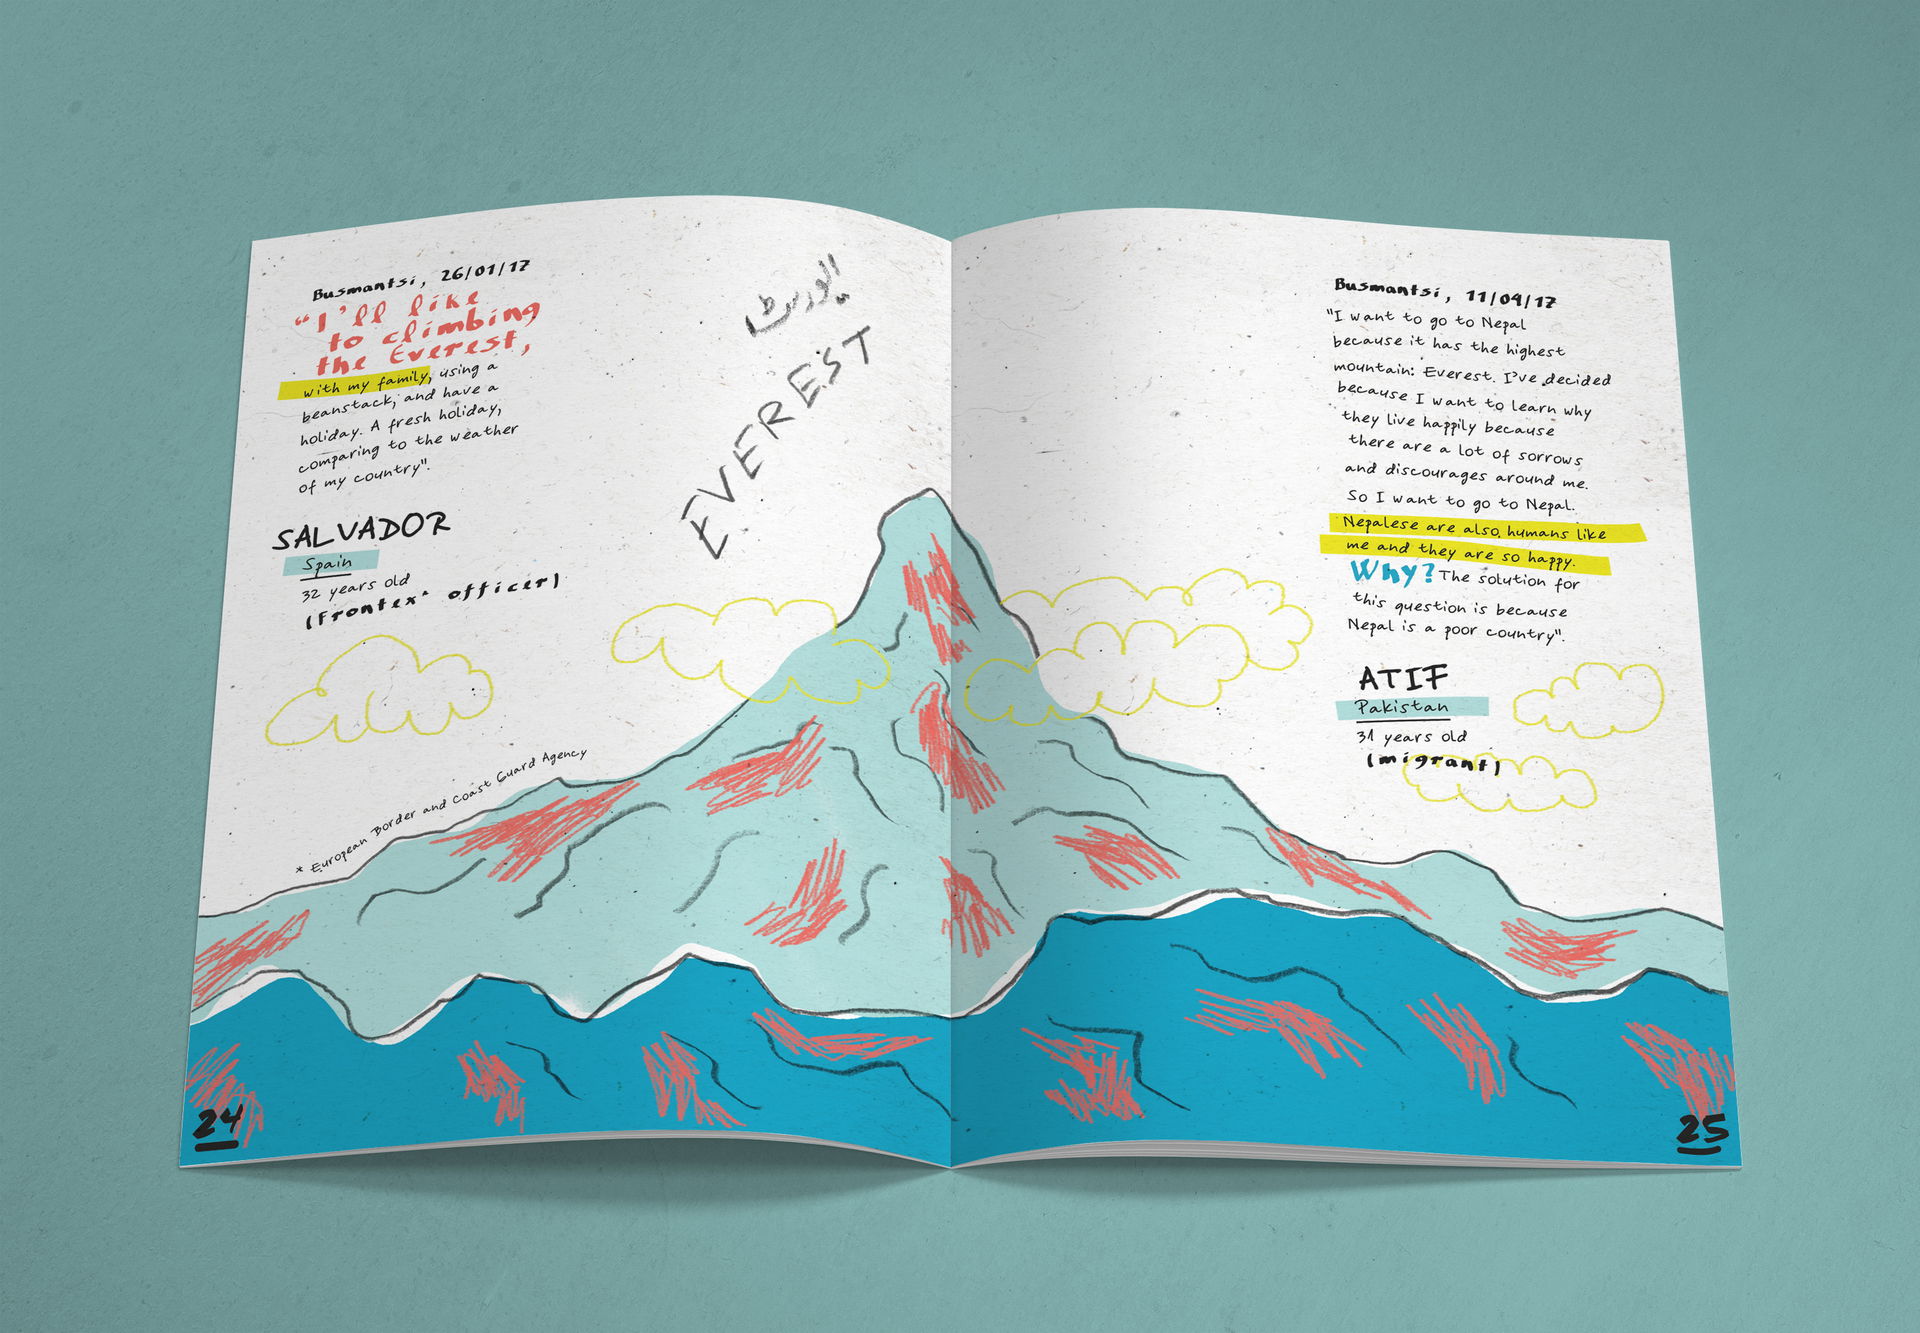 Busmantsi, 26/01/17
"I'll like
to climbing
the Everest,
with my family, using a
beanstack, and have a
holiday. A fresh holiday,
comparing to the weather
of my country".
SALVADOR
Spain
32 years old
(Frontex* officer)
* European Border and Coast Guard Agency
ایورسٹ
EVEREST
24
Busmantsi, 11/04/17
"I want to go to Nepal
because it has the highest
mountain: Everest. I've decided
because I want to learn why
they live happily because
there are a lot of sorrows
and discourages around me.
So I want to go to Nepal.
Nepalese are also humans like
me and they are so happy.
Why? The solution for
this question is because
Nepal is a poor country".
ATIF
Pakistan
31 years old
(migrant)
25